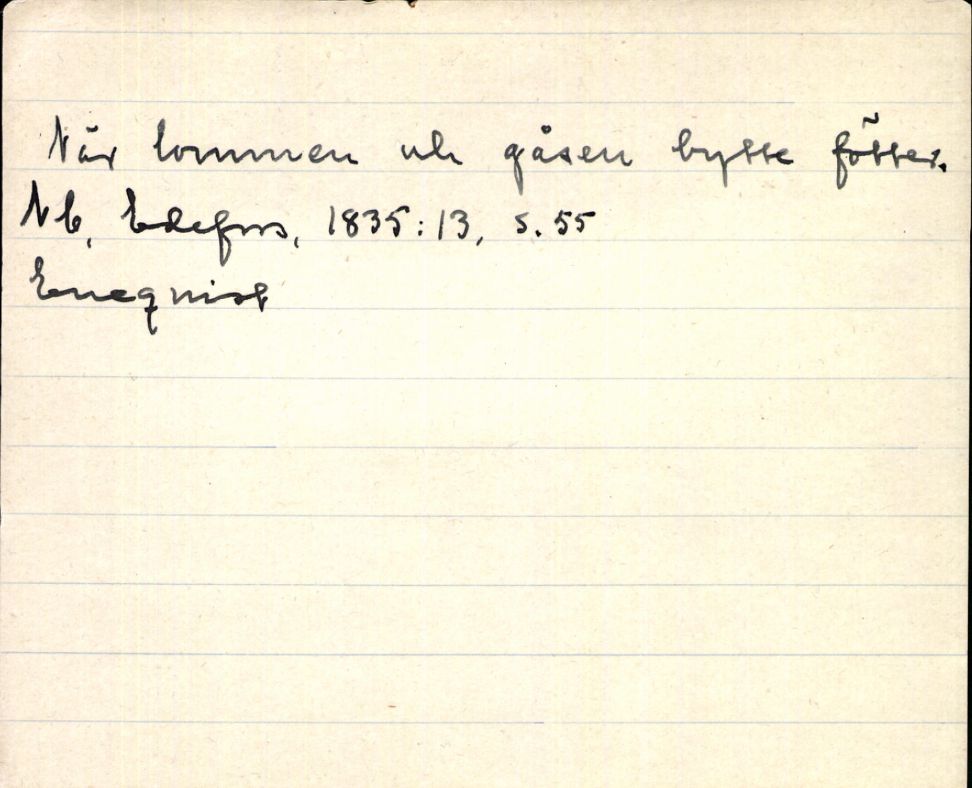 När lommen och gåsen bytte fötter.
Nb, Edefors, 1835:13, s. 55
Eneqvist